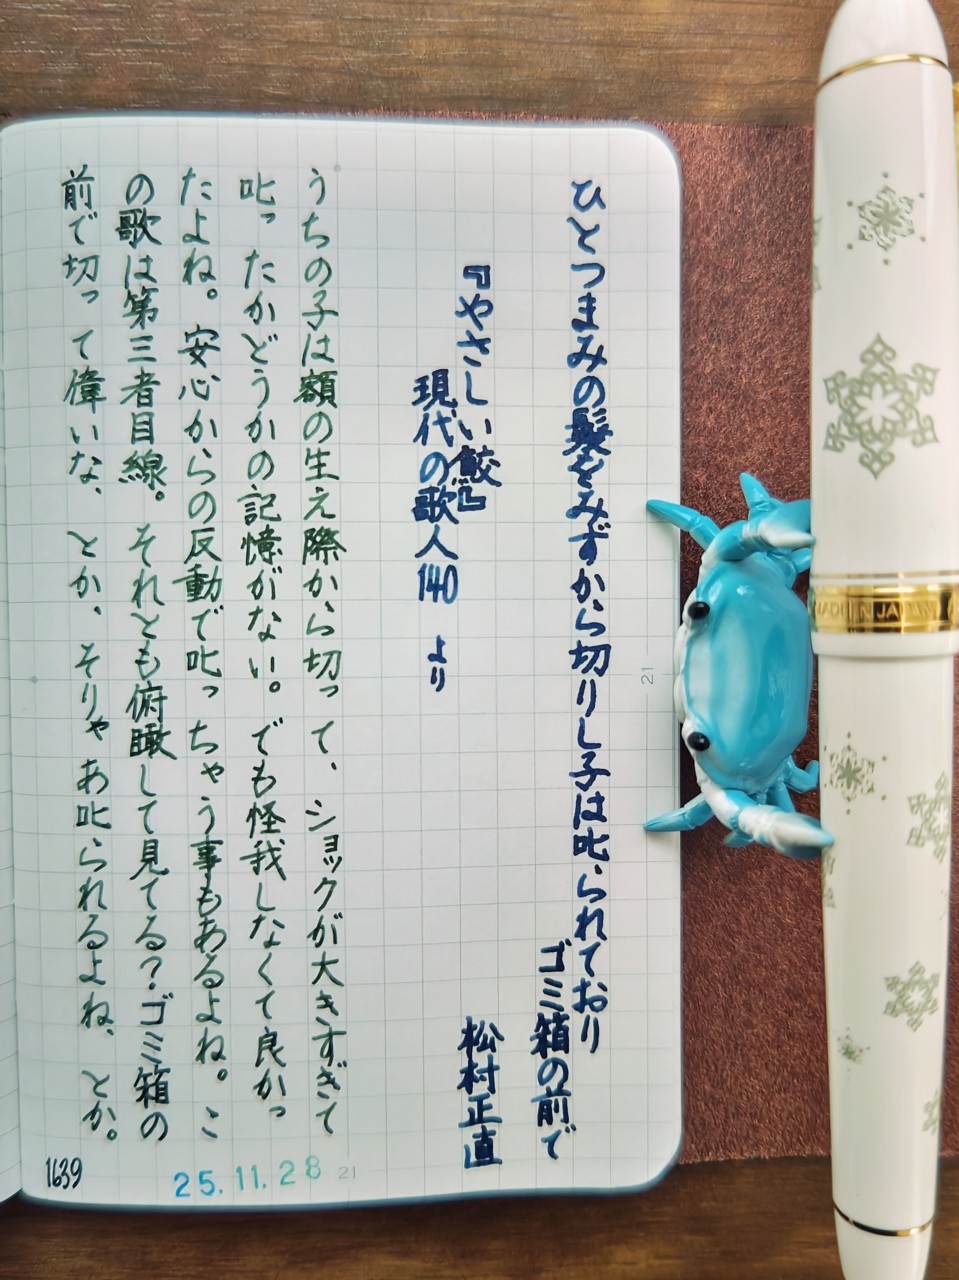 ひとつまみの髪をみずから切りし子は叱られており
ゴミ箱の前で
『やさしい鮫』
松村正直
現代の歌人140 より
うちの子は額の生え際から切って、ショックが大きすぎて
叱ったかどうかの記憶がない。でも怪我しなくて良かっ
たよね。安心からの反動で叱っちゃう事もあるよね。こ
の歌は第三者目線。それとも俯瞰して見てる?ゴミ箱の
前で切って偉いな、とか、そりゃあ叱られるよね、とか。
1639
25.11.28
21
21
MADE IN JAPAN